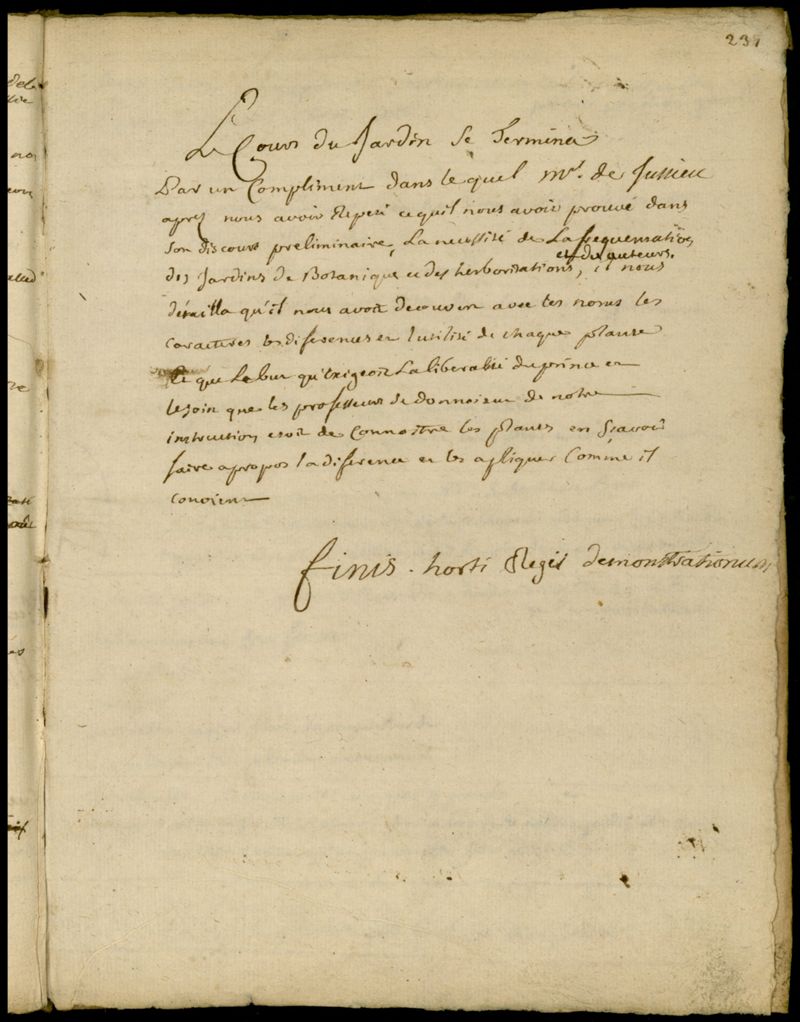 237
Le Cours du Jardin se Termina
Par un Compliment dans lequel mr. de Jussieu
aprez nous avoir Repeté ce qu'il nous avoit prouvé dans
son discours preliminaire, La necessité de La frequentation
et des auteurs.
des Jardins de Botanique et des herborisations, il nous
détailla qu'il nous avoit decouvert avec les noms les
caracteres les diferences et l'utilité de chaque plante
que Le but qu'exigeoit La liberalité du prince et
le soin que les professeurs se donnoient de notre
instruction etoit de Connoitre les plantes en sçavoir
faire apropos la diference et les apliquer Comme il
convient
finis . horti Regis demonstrationum